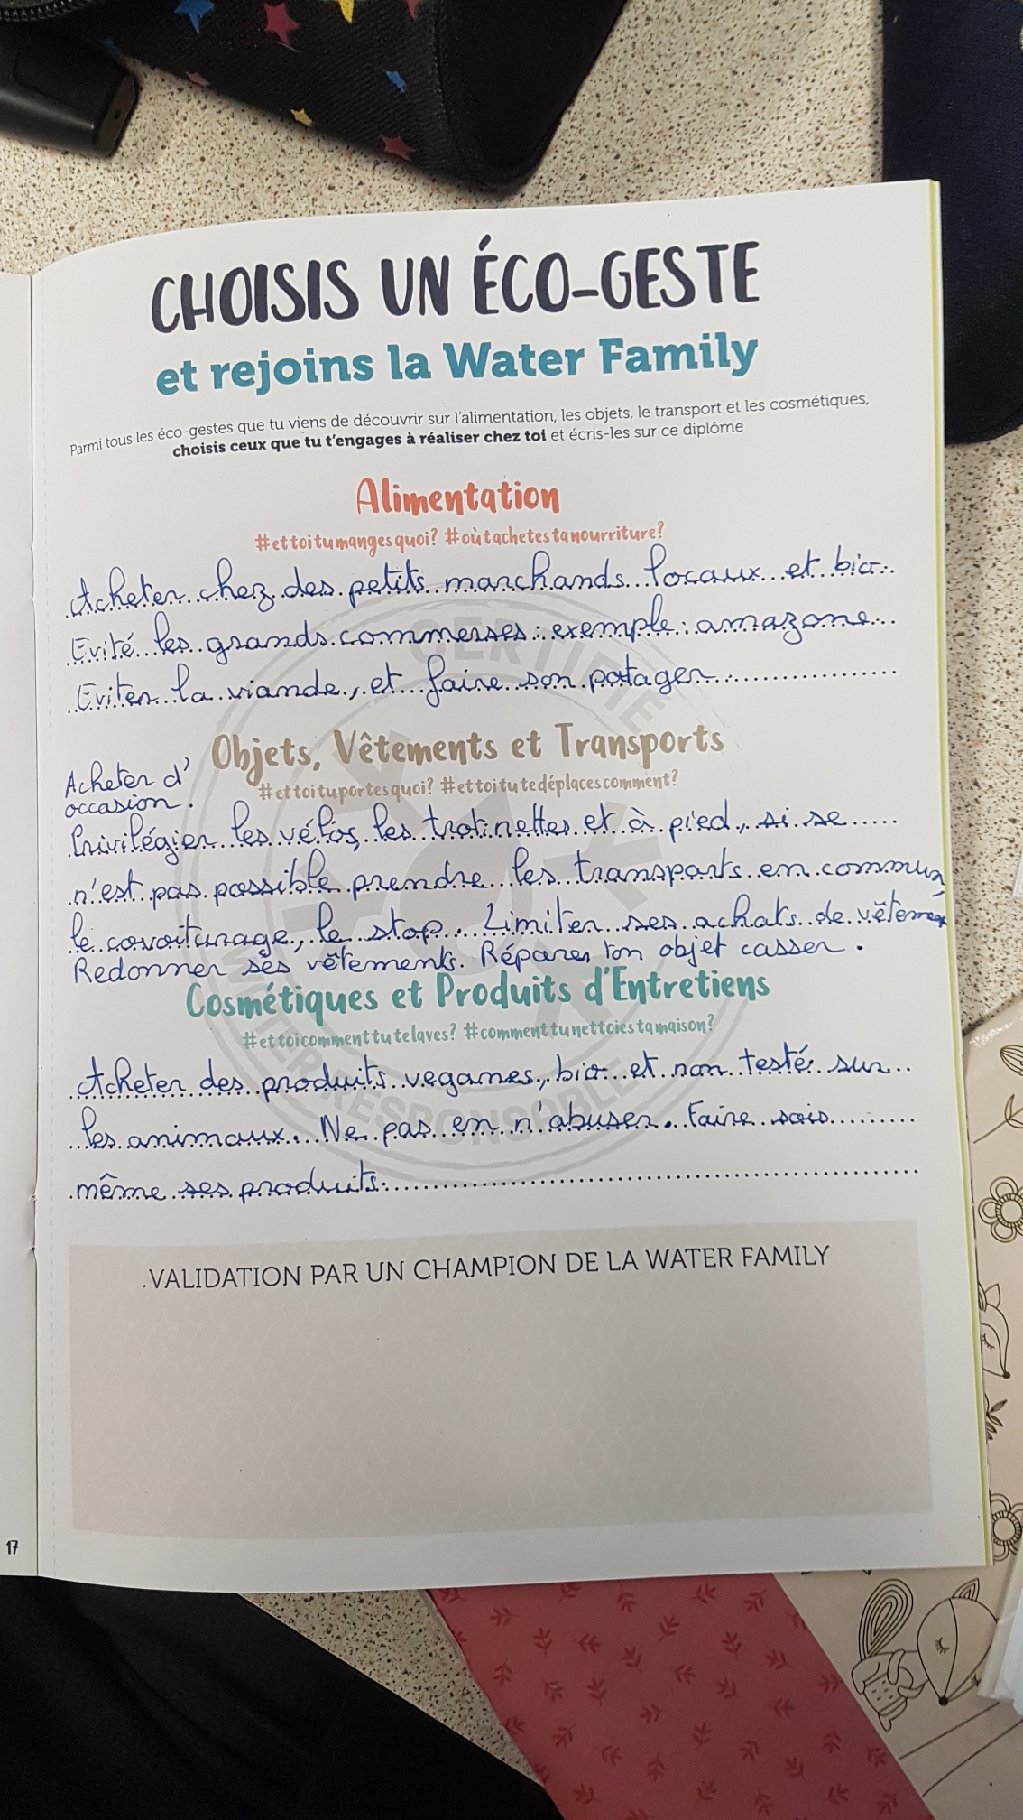 CHOISIS UN ÉCO-GESTE
et rejoins la Water Family
Parmi tous les éco-gestes que tu viens de découvrir sur l'alimentation, les objets, le transport et les cosmétiques,
choisis ceux que tu t'engages à réaliser chez toi et écris-les sur ce diplôme
Alimentation
#ettoitumangesquoi? #oùtachetestanourriture?
Acheter chez des petits marchands locaux et bio.
Evité les grands commerses : exemple : amazone.
Eviter la viande, et faire son potager.
Objets, Vêtements et Transports
#ettoituportesquoi? #ettoitutedéplacescomment?
Acheter d'
occasion.
Privilégier les vélos, les trotinettes et à pied, si se
n'est pas possible prendre les transports en commun,
le covoiturage, le stop. Limiter ses achats de vêtement
Redonner ses vêtements. Réparer ton objet casser.
Cosmétiques et Produits d'Entretiens
#ettoicommenttutelaves? #commenttunettoiestamaison?
Acheter des produits veganes, bio et non testé sur
les animaux. Ne pas en n'abuser. Faire sois
même ses produits.
CERTIFIÉ
WATER RESPONSABLE
VALIDATION PAR UN CHAMPION DE LA WATER FAMILY
17